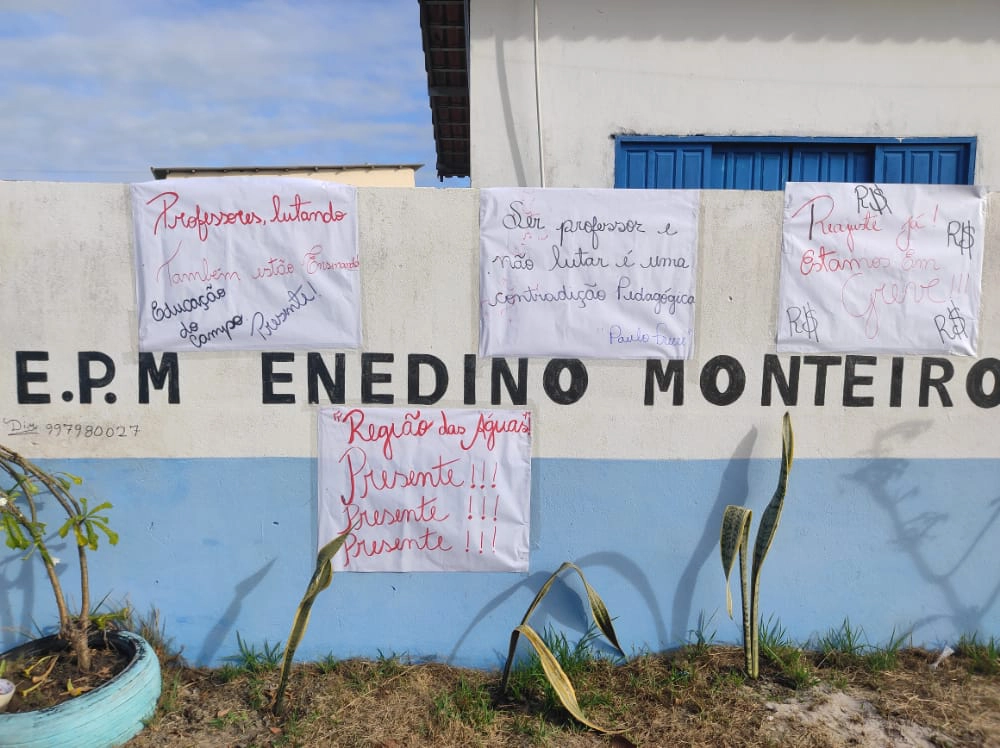 Professores, lutando
Também estão Ensinando
Educação
do
Campo
Presente!
Ser professor e
não lutar é uma
contradição Pedagógica
"Paulo Freire
Reajuste Já!
Estamos Em
Greve!!!
R$
R$
R$
R$
E.P.M ENEDINO MONTEIRO
Dir 997980027
"Região das Águas"
Presente!!!
Presente !!!
Presente !!!